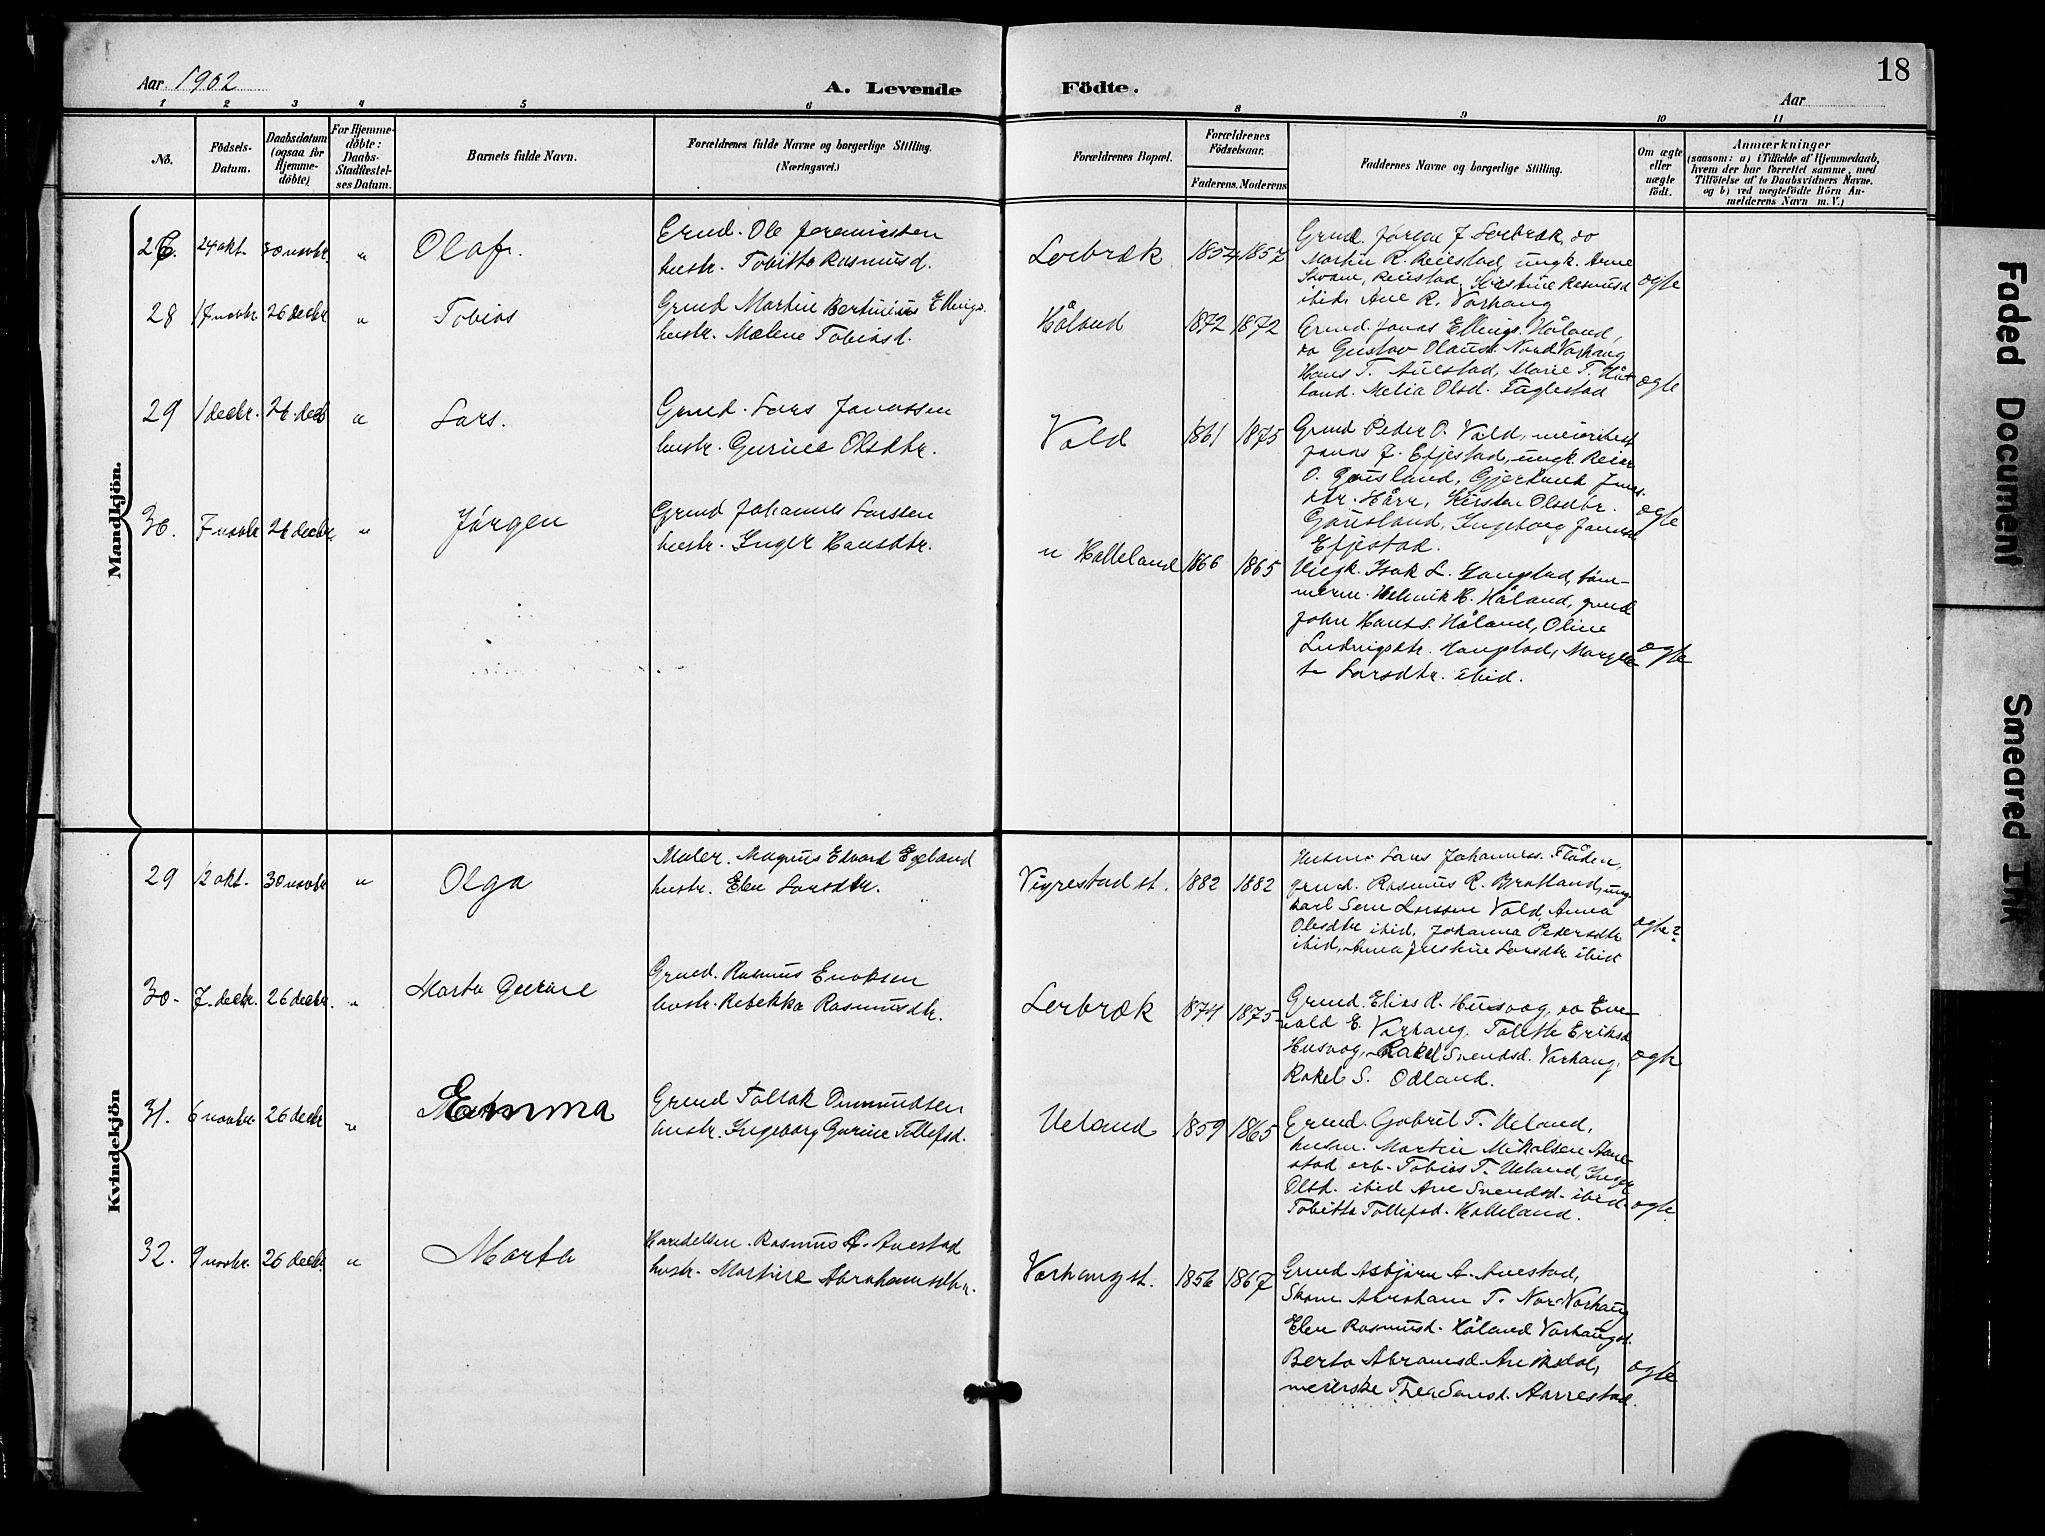 Aar 1902
A. Levende Födte.
18
Aar
1 2 3 4 5 6 8 9 10 11
No.
Födsels-Datum.
Daabsdatum (ogsaa for Hjemme-döbte)
For Hjemme-döbte: Daabs-Stadfæstel-ses Datum.
Barnets fulde Navn.
Forældrenes fulde Navne og borgerlige Stilling. (Næringsvei.)
Forældrenes Bopæl.
Forældrenes Födselsaar.
Faderens. Moderens
Faddernes Navne og borgerlige Stilling.
Om ægte eller uægte födt.
Anmærkninger
(saasom: a) i Tilfælde af Hjemmedaab,
hvem der har forrettet samme, med
Tilföielse af to Daabsvidners Navne.
og b) ved uægtefödte Börn An-
melderens Navn m. V.)
Mandkjön.
24 okt. 30 novbr. " Olaf.
Grmd. Ole
hustr. Tobitha Rasmusd.
Lerbræk 1857
Grmd. Jørgen J Lerbræk, do
Martin R. Reiestad, ungk. Arne
Reiestad,
ibid, Ane R. Varhaug
ægte
28 17 novbr 26 decbr " Tobias
Grmd Martin Bertinius Ellings.
hustr. Malene Tobiasd.
Håland 1872 1872
Grmd. Jonas Ellings. Håland,
do Gustav Olaus. Nord Varhaug
Hans T. Auestad, Marie T. Hå-
land. Melia Olsd. Taglestad
ægte
29 1 decbr. 26 decb " Lars.
Grmd. Lars Janassen
hustr. Gurine Olsdtr.
Vold 1861 1875
Grmd Peder O. Vold, meieribest
Janas J. Efjestad, ungk. Reier
O. Gausland, Gjertrud Janas-
dtr. Hårr, Kirsten Olsdtr.
Gausland, Ingeborg Janasd
Efjestad.
ægte
30. 7 novbr 26 decbr. " Jørgen
Grmd Johannes Larsen
hustr. Inger Hansdtr.
n Halleland 1866 1865
Ungk. Isak L. Haugstad, tøm-
merm. Henrik H. Håland, grmd
John Hanss. Håland, Oline
Ludvigsdtr. Haugstad, Margre-
te Larsdtr. ibid.
ægte
Kvindekjön
29 12 okt. 30 novbr " Olga
Maler. Magnus Edvard Egeland
hustr. Elen Larsdtr.
Vigrestad st. 1882 1882
Husm. Lars Johanness. Flåden,
grmd. Rasmus R. Bratland, ung-
karl Sem Larssen Vold, Anna
Olesdtr ibid, Johanna Pedersdtr
ibid, Anna Larsdtr ibid
ægte?
30. 7. decbr. 26 decbr. " Marta Gurine
Grmd. Rasmus Enoksen
hustr. Rebekka Rasmusdtr.
Lerbræk 1874 1875
Grmd. Elias R. Husvog, do Ene-
vald E. Varhaug, Tolette Eriksd
Husvog, Rakel Svendsd. Varhaug,
Rakel S. Odland.
ægte
31. 6 novbr. 26 decbr " Emma
Grmd Tollak Ommundsen
hustr. Ingeborg Gurine Tollefsd.
Ueland 1859 1865
Grmd. Gabriel T. Ueland,
husm. Martin Mikalsen Aane-
stad arb. Tobias T. Ueland, Inger
Olsd. ibid Ane Svendsd. ibid.
Tobitha Tollefsd. Halleland.
ægte.
32. 9 novbr. 26 decbr. " Marta
Handelsm. Rasmus A. Auestad
hustr. Martine Abrahamsdtr.
Varhaug st. 1856 1867
Grmd Asbjørn A. Auestad,
Skom Abraham T. Nor-Varhaug
Elen Rasmusd. Håland Varhaugst.
Berta Abramsd. Aniksdal,
meierske Thea Sensd. Aarrestad.
ægte
Faded Document
Smeared Ink